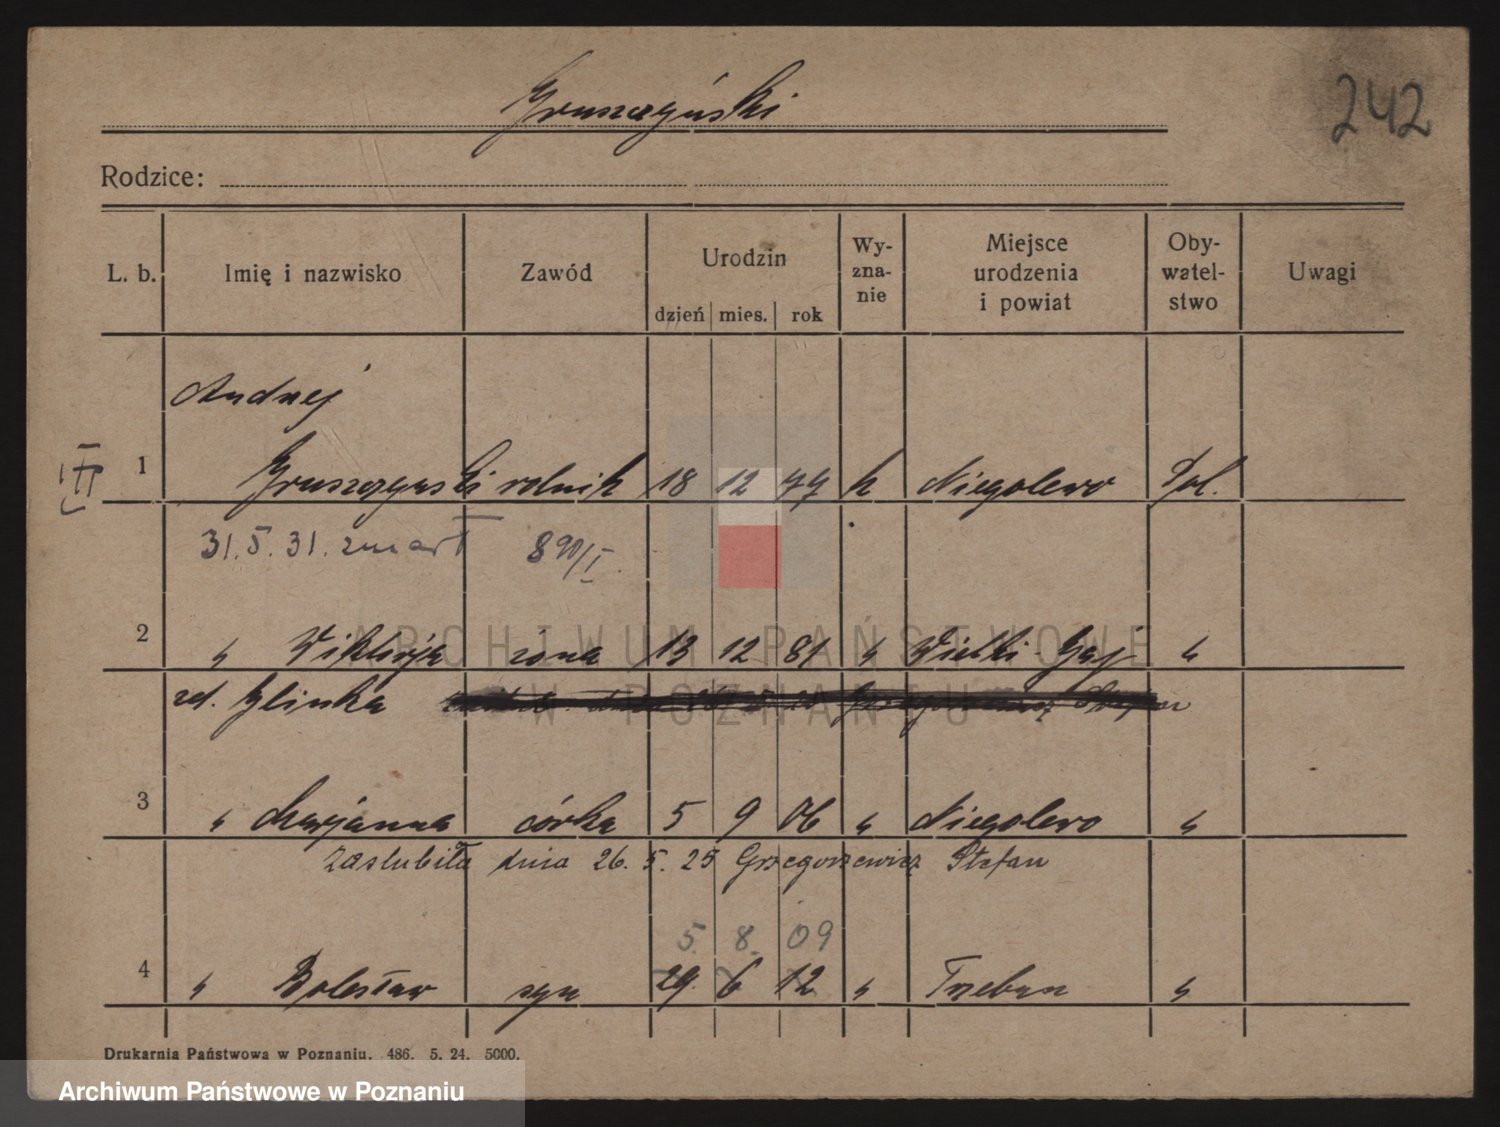 Gruszczyński
242
Rodzice:
L. b. Imię i nazwisko Zawód Urodzin dzień mies. rok Wy-zna-nie Miejsce urodzenia i powiat Oby-watel-stwo Uwagi
Andrzej
III 1 Gruszczyński rolnik 18 12 77 k Niegolewo Pol.
31. 5. 31. zmarł 890/I.
2 " Wiktorja żona 13 12 81 " Wielki Gaj "
zd. Glinka
3 " Marjanna córka 5 9 06 " Niegolewo "
Zaślubiła dnia 26. 5. 25 Grzegorzewicz Stefan
5. 8. 09
4 " Bolesław syn 29. 6 12 " "
Drukarnia Państwowa w Poznaniu. 486. 5. 24. 5000.
ARCHIWUM PAŃSTWOWE
W POZNANIU
Archiwum Państwowe w Poznaniu